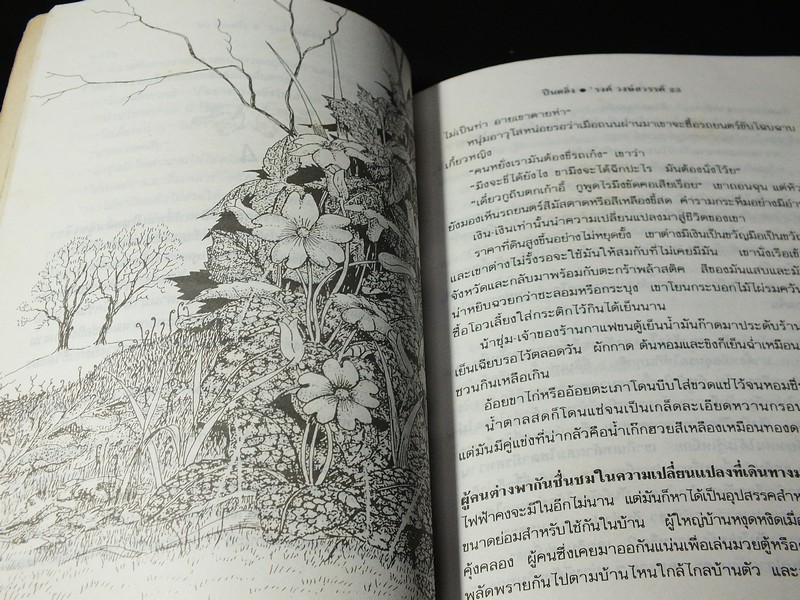 ปืนตลิ่ง ● 'รงค์ วงษ์สวรรค์ ๕๕
ไม่เป็นท่า อายเขาตายห่า"
หนุ่มอาวุโสหน่อยรอว่าเมื่อถนนผ่านมาเขาจะซื้อรถยนตร์ขับโฉบฉาบ
เกี้ยวหญิง
"คนหยั่งเรามันต้องขี่รถเก๋ง" เขาว่า
"มึงจะขี่ได้ยังไง ขามึงจะได้ฉีกปะไร มันต้องนั่งโว้ย"
"เดี๋ยวกูถีบตกเก้าอี้ กูพูดไรมึงขัดคอเสียเรื่อย" เขาถอนฉุน แต่หัว
ยังมองเห็นรถยนตร์สีมัสตาดหรือสีเหลืองขี้สด คำรามกระหึ่มอย่างมีอำ
เงิน-เงินเท่านั้นนำความเปลี่ยนแปลงมาสู่ชีวิตของเขา
ราคาที่ดินสูงขึ้นอย่างไม่หยุดยั้ง เขาต่างมีเงินเป็นขวัญมือเป็นขวัญ
และเขาต่างไม่รั้งรอจะใช้มันให้สมกับที่ไม่เคยมีมัน เขานั่งเรือเข้
จังหวัดและกลับมาพร้อมกับตะกร้าพล้าสติค สีของมันแสบและมั
น่าหยิบฉวยกว่าชะลอมหรือกระบุง เขาโยนกระบอกไม้ไผ่รมควั
ซื้อโอวเลี้ยงใส่กระติกไว้กินได้เย็นนาน
น้าชุ่ม-เจ้าของร้านกาแฟขนตู้เย็นน้ำมันก๊าดมาประดับร้า
เย็นเฉียบรอไว้ตลอดวัน ผักกาด ต้นหอมและขิงก็เย็นฉ่ำเหมือน
ชวนกินเหลือเกิน
อ้อยขาไก่หรืออ้อยตะเภาโดนบีบใส่ขวดแช่ไว้จนหอมชื่
น้ำตาลสดก็โดนแช่จนเป็นเกล็ดละเอียดหวานกรอบ
แต่มันมีคู่แข่งที่น่ากลัวคือน้ำเก๊กฮวยสีเหลืองเหมือนทองด
ผู้คนต่างพากันชื่นชมในความเปลี่ยนแปลงที่เดินทางม
ไฟฟ้าคงจะมีในอีกไม่นาน แต่มันก็หาได้เป็นอุปสรรคสำห
ขนาดย่อมสำหรับใช้กันในบ้าน ผู้ใหญ่บ้านหงุดหงิดเมื่
คุ้งคลอง ผู้คนซึ่งเคยมาออกันแน่นเพื่อเล่นมวยตู้หรือ
พลัดพรายกันไปตามบ้านไหนใกล้ไกลบ้านตัว และ